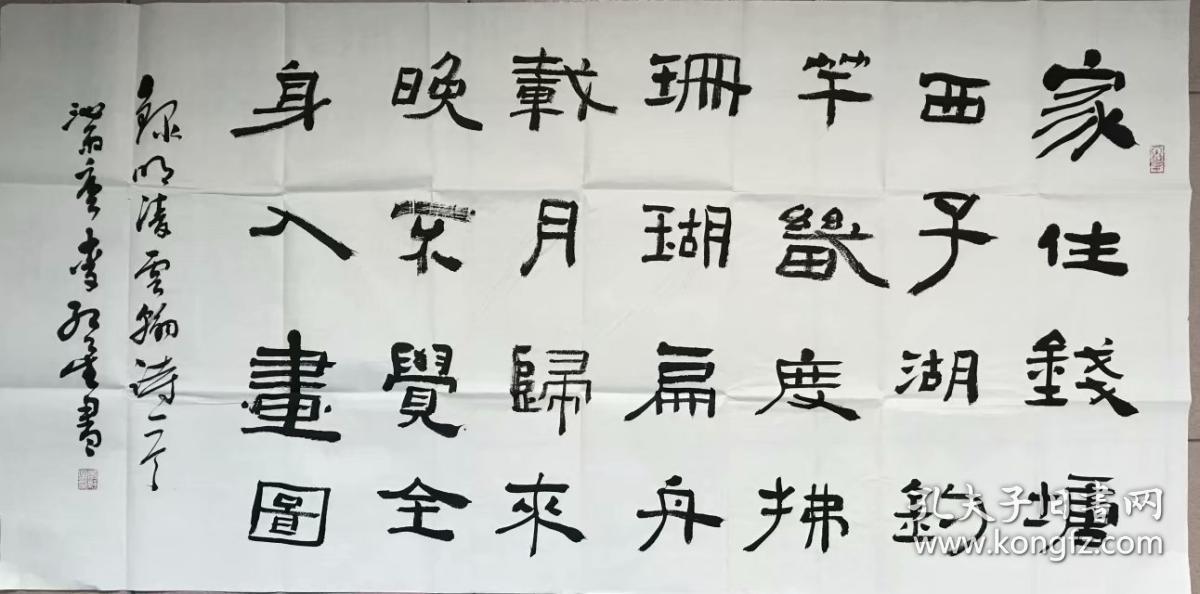 家住錢塘
西子湖釣
竿幾度拂
珊瑚扁舟
載月歸來
晚不覺全
身入畫圖
錄明凌雲翰詩一首
書
孔夫子旧書网
www.kongfz.com